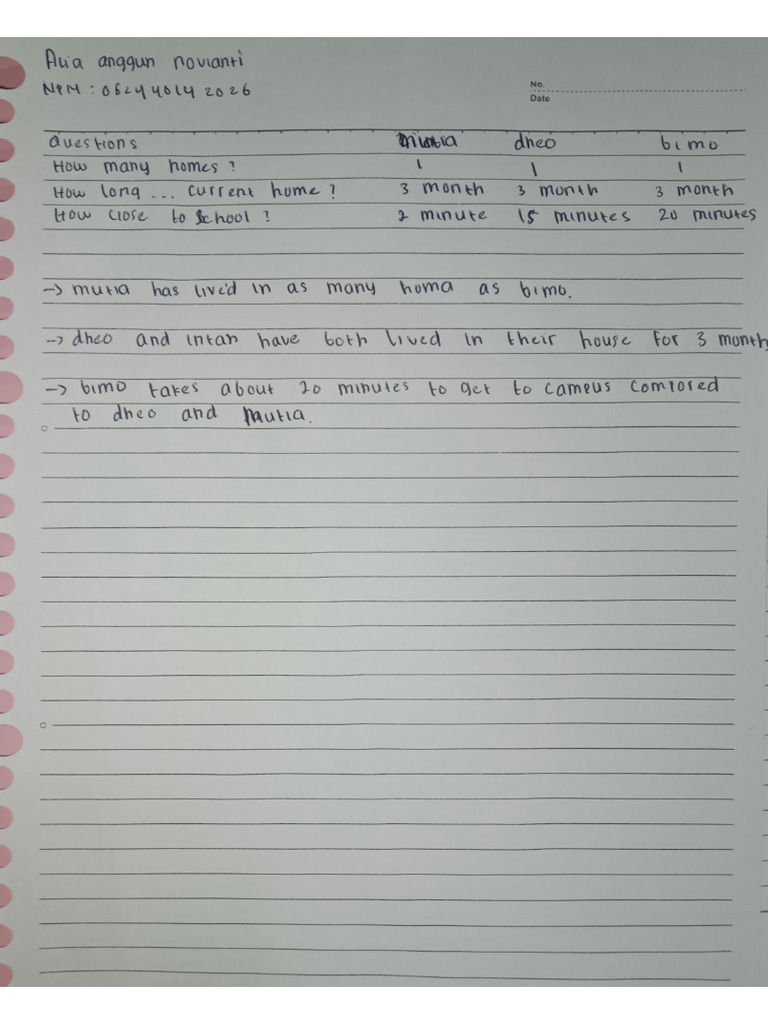 Alia anggun novianti
NPM : 06244014 2026
No.
Date
Questions mutia dheo bimo
How many homes ? 1 1 1
How long ... current home ? 3 month 3 month 3 month
How close to school ? 2 minute 15 minutes 20 minutes
-> mutia has lived in as many homa as bimo.
-> dheo and intan have both lived in their house for 3 month
-> bimo takes about 20 minutes to get to campus comrored
to dheo and Mutia.